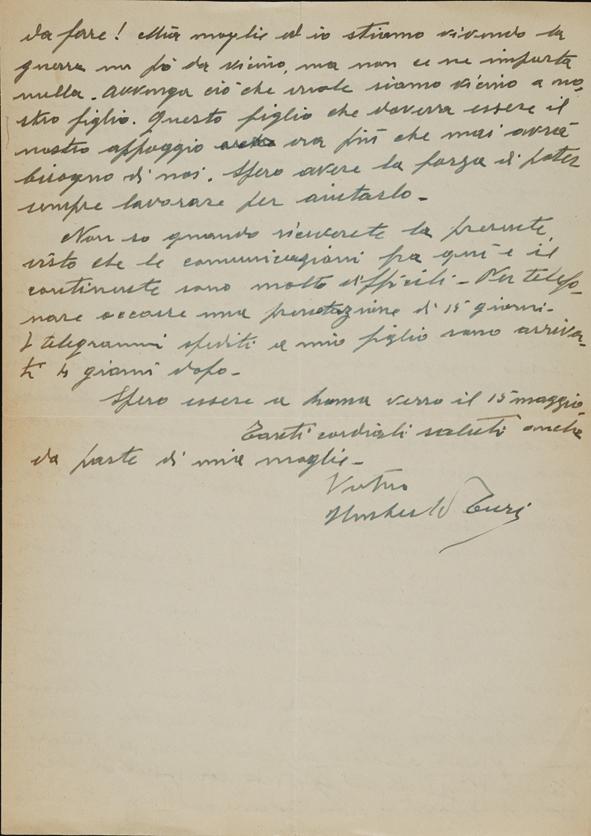 da fare! Mia moglie ed io stiamo vivendo la
guerra un pò da vicino, ma non ce ne importa
nulla. Avvenga ciò che vuole siamo vicino a no-
stro figlio. Questo figlio che doveva essere il
nostro appoggio ora più che mai avrà
bisogno di noi. Spero avere la forza di poter
sempre lavorare per aiutarlo -
Non so quando riceverete la presente,
visto che le comunicazioni fra qui e il
continente sono molto difficili - Per telefo-
nare occorre una prenotazione di 15 giorni -
I telegrammi spediti a mio figlio sono arriva-
ti 4 giorni dopo -
Spero essere a Roma verso il 15 maggio.
Tanti cordiali saluti anche
da parte di mia moglie -
Vostro